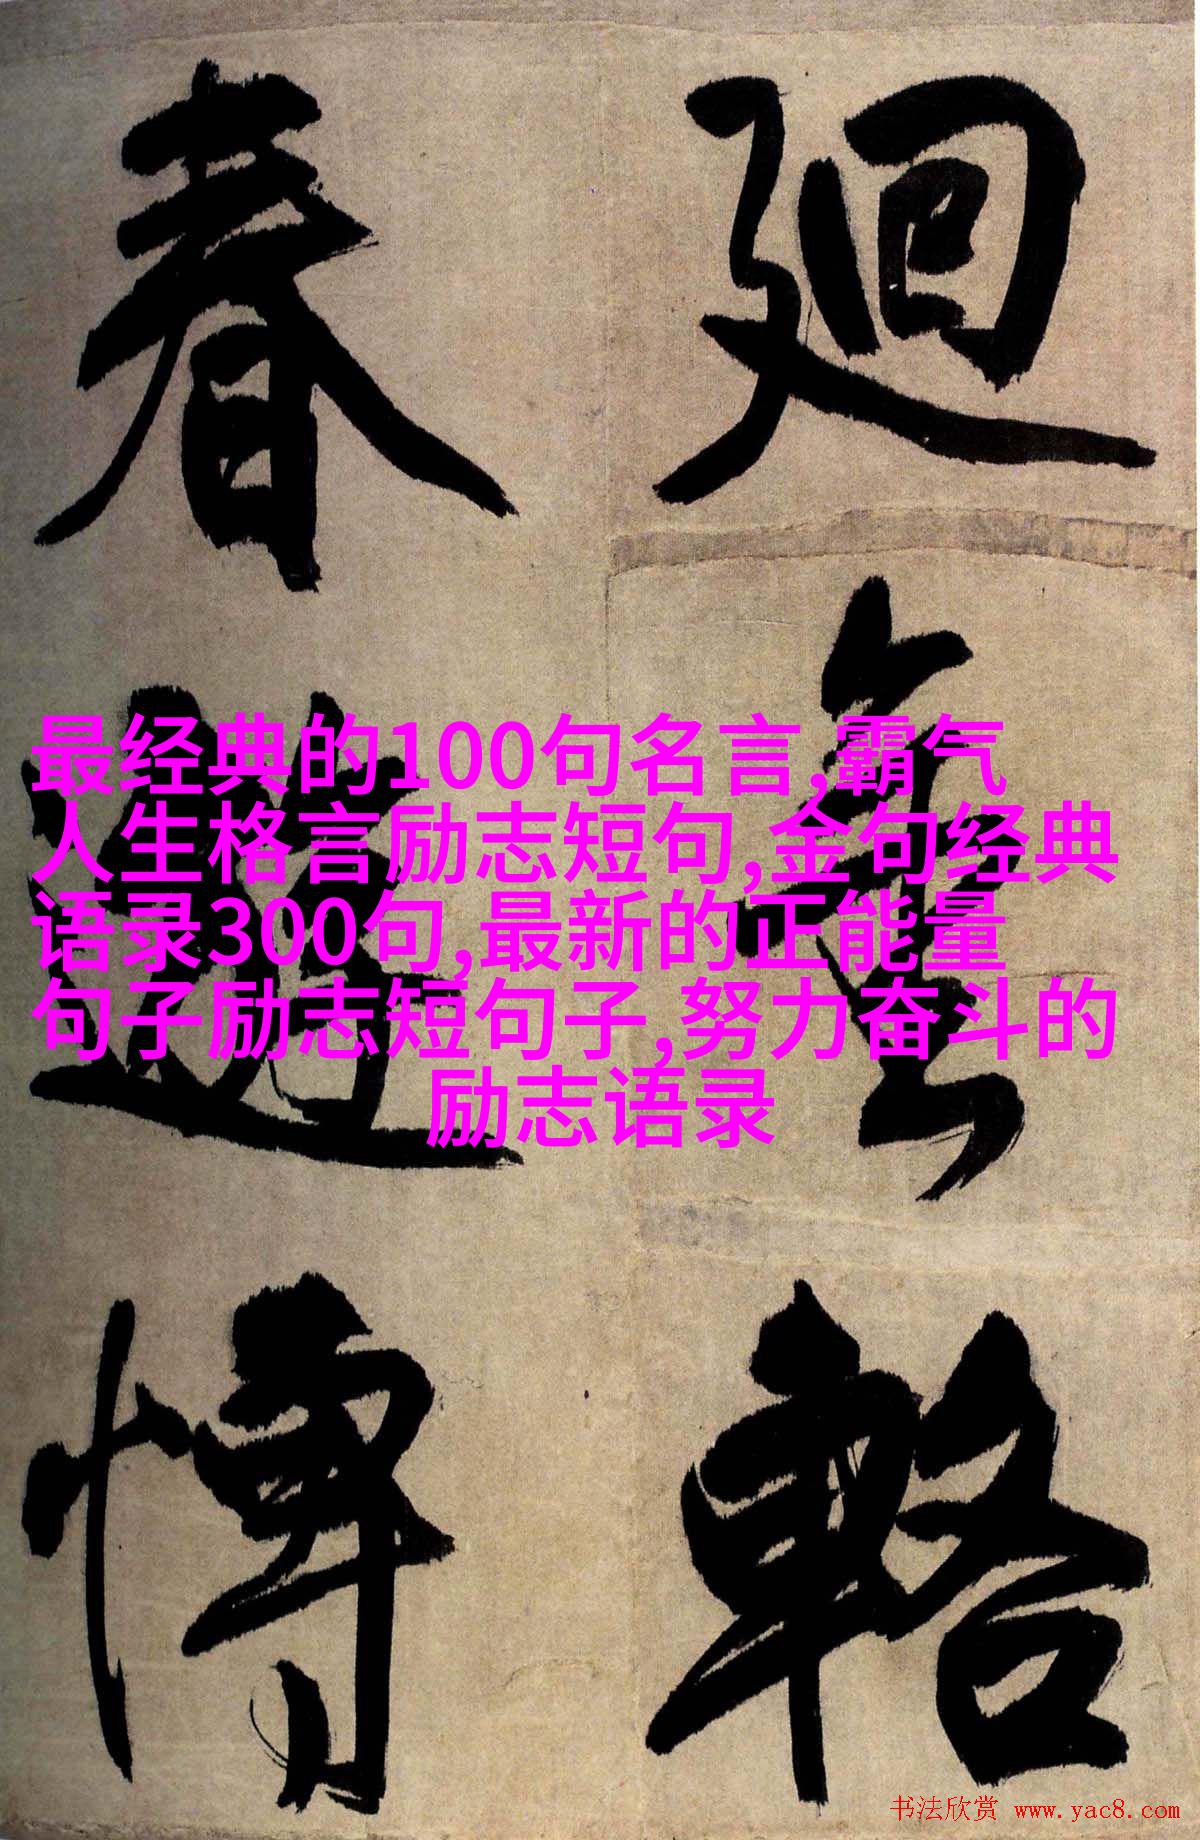 迴
輅
春
愽
最经典的100句名言,霸气
人生格言励志短句,金句经典
语录300句,最新的正能量
句子励志短句子,努力奋斗的
励志语录
书法欣赏 www.yac8.com